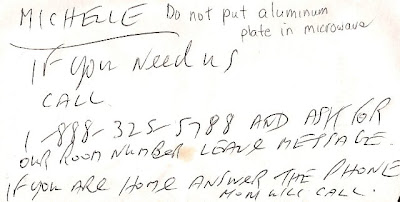 MICHELLE Do not put aluminum
plate in microwave
If you Need us
CALL.
1-888-325-5788 AND ASK FOR
OUR ROOM NUMBER LEAVE MESSAGE.
IF you ARE HOME ANSWER THE PHONE
MOM WILL CALL.